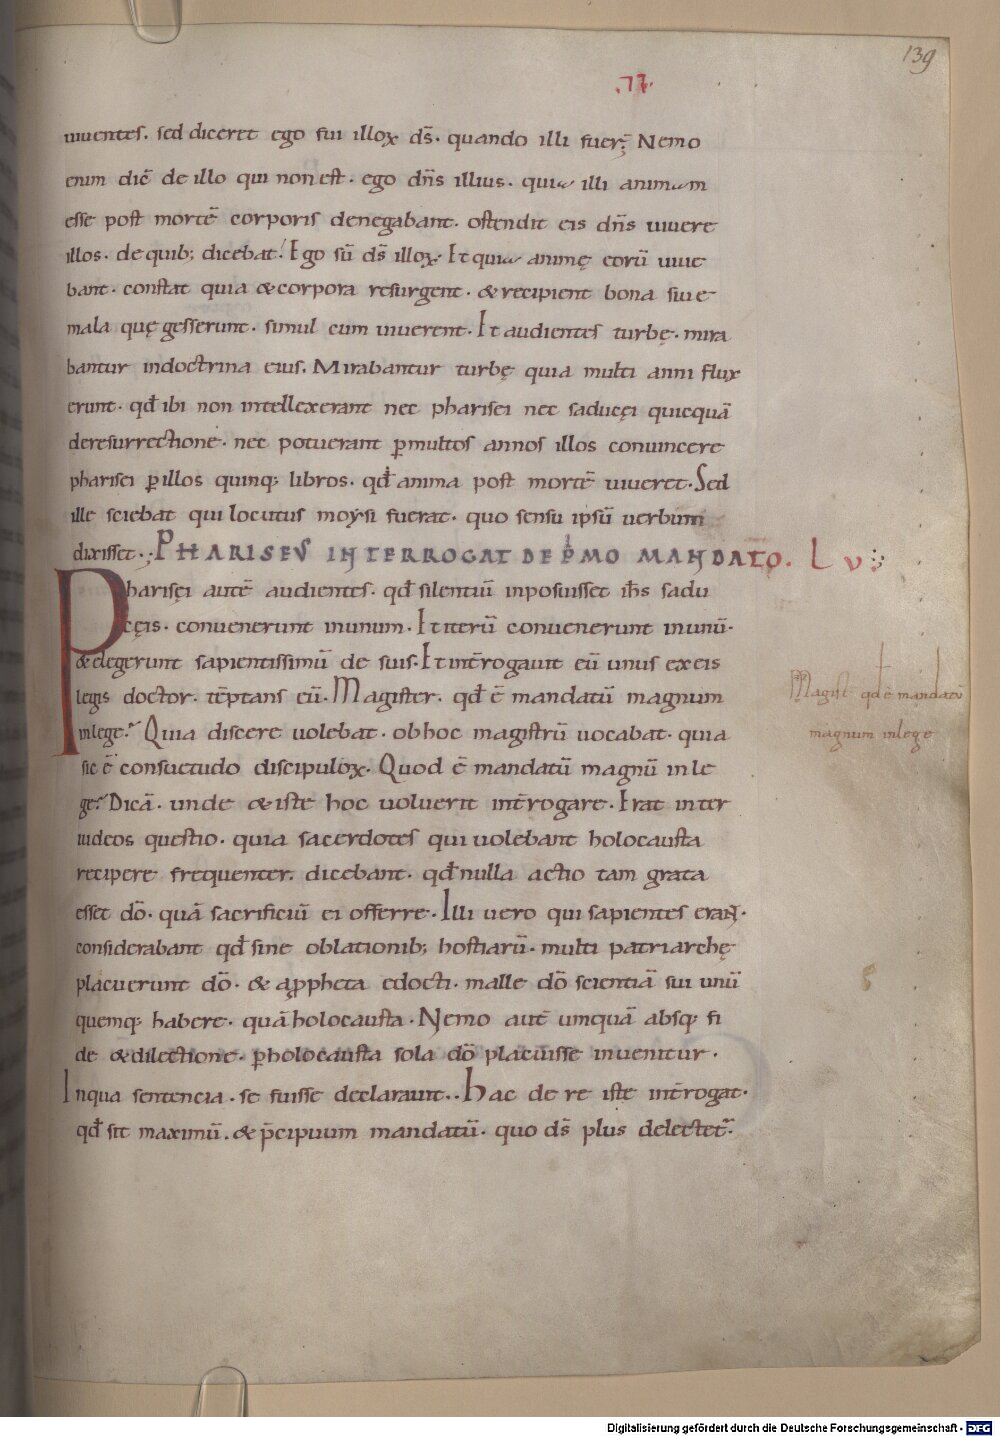 139
.77.
uiuentes. sed diceret ego fui illoꝝ ds̄. quando illi fuer̄. Nemo
enim dic̄ de illo qui non est. ego dn̄s illius. quia illi animam
esse post mortē corporis denegabant. ostendit eis dn̄s uiuere
illos. de quib; dicebat. Ego sū ds̄ illoꝝ. Et quia animę eorū uiue
bant. constat quia & corpora resurgent. & recipient bona siue
mala quę gesserunt. simul cum uiuerent. Et audientes turbę. mira
bantur indoctrina eius. Mirabantur turbę quia multi anni flux
erunt. qđ ibi non intellexerant nec pharisei nec saducęi quicquā
deresurrectione. nec potuerant ꝑmultos annos illos conuincere
pharisei ꝑ illos quinq; libros. qđ anima post mortē uiueret. Sed
ille sciebat qui locutus moysi fuerat. quo sensu ipsū uerbum
dixisset. PHARISEVS INTERROGAT DE PⁱMO MANDATO. LV
Pharisęi autē audientes. qđ silentiū inposuisset ih̄s sadu
cęis. conuenerunt inunum. Et iterū conuenerunt inunū.
& elegerunt sapientissimū de suis. Et int̄rogauit eū unus ex eis
legis doctor. tēptans eū. Magister. qđ ē mandatū magnum
inlege? Quia discere uolebat. obhoc magistrū uocabat. quia
sic ē consuetudo discipuloꝝ. Quod ē mandatū magnū in le
ge? Dicā. unde & iste hoc uoluerit int̄rogare. Erat inter
iudeos questio. quia sacerdotes qui uolebant holocausta
recipere frequenter. dicebant. qđ nulla actio tam grata
esset dō. quā sacrificiū ei offerre. Illi uero qui sapientes erant.
considerabant qđ sine oblationib; hostiarū. multi patriarchę
placuerunt dō. & aꝓpheta edocti. malle dō scientiā sui unū
quemq; habere. quā holocausta. Nemo autē umquā absq; fi
de & dilectione. ꝑholocausta sola dō placuisse inuenitur.
Inqua sentencia. se fuisse declarauit. Hac de re iste int̄rogat.
qđ sit maximū. & p̄cipuum mandatū. quo ds̄ plus delectet̄.
Magist qđ ē mandatū
magnum inlege
Digitalisierung gefördert durch die Deutsche Forschungsgemeinschaft - DFG